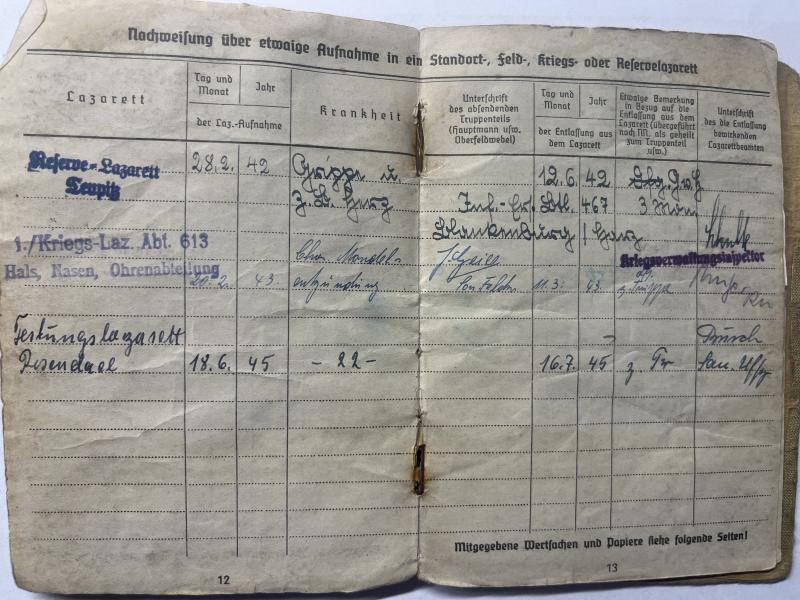 Nachweisung über etwaige Aufnahme in ein Standort-, Feld-, Kriegs- oder Reservelazarett
Lazarett
Tag und Monat
Jahr
der Laz.-Aufnahme
Krankheit
Unterschrift des absendenden Truppenteils (Hauptmann usw. Oberfeldwebel)
Tag und Monat
Jahr
der Entlassung aus dem Lazarett
Etwaige Bemerkung in Bezug auf die Entlassung aus dem Lazarett (übergeführt nach N., als geheilt zum Truppenteil usw.)
Unterschrift des die Entlassung bewirkenden Lazarettbeamten
Reserve-Lazarett 28.2. 42 Grippe u. 12.6. 42
Teupitz Z.B. Herz Inf.-Ers. Btl. 467 3
Blankenburg / Harz
1./Kriegs-Laz. Abt. 613 Kriegsverwaltungsinspektor
Hals, Nasen, Ohrenabteilung Chron. Mandel-
20.2. 43. entzündung 11.3. 43.
Festungslazarett
Rosendael 18.6. 45 - 22 - 16.7. 45 z. Tr San. Uffz
Mitgegebene Wertsachen und Papiere siehe folgende Seiten!
12
13